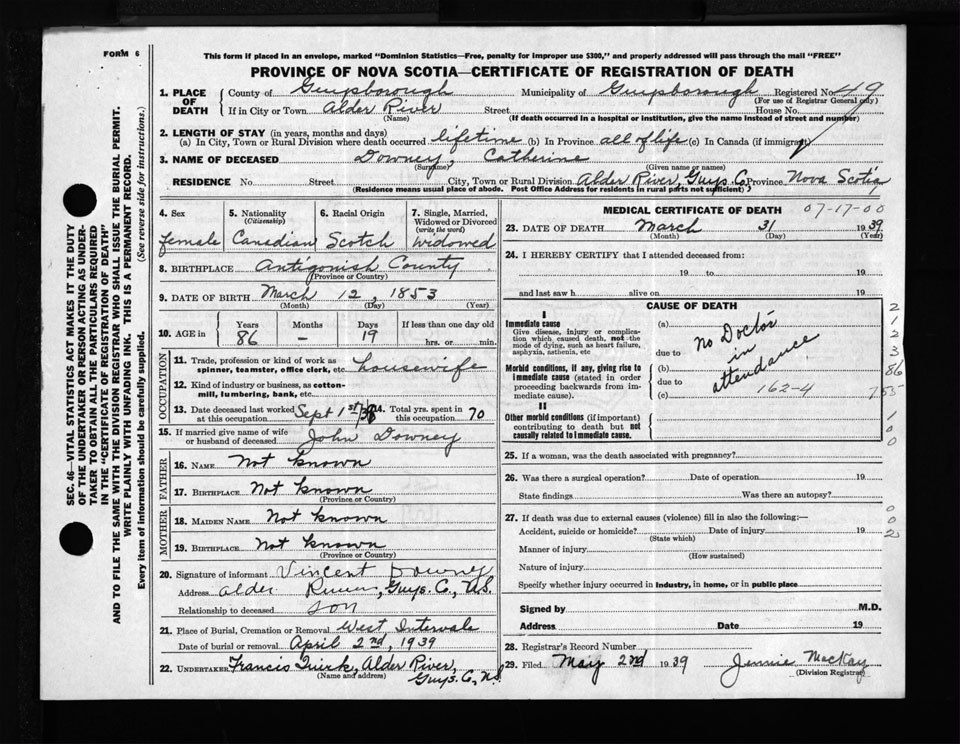 FORM 6
This form if placed in an envelope, marked "Dominion Statistics—Free, penalty for improper use $300," and properly addressed will pass through the mail "FREE"
PROVINCE OF NOVA SCOTIA—CERTIFICATE OF REGISTRATION OF DEATH
SEC. 46—VITAL STATISTICS ACT MAKES IT THE DUTY
OF THE UNDERTAKER OR PERSON ACTING AS UNDER-
TAKER TO OBTAIN ALL THE PARTICULARS REQUIRED
IN THE "CERTIFICATE OF REGISTRATION OF DEATH"
AND TO FILE THE SAME WITH THE DIVISION REGISTRAR WHO SHALL ISSUE THE BURIAL PERMIT.
WRITE PLAINLY WITH UNFADING INK. THIS IS A PERMANENT RECORD.
Every item of information should be carefully supplied. (See reverse side for instructions.)
1. PLACE OF DEATH County of Guysborough Municipality of Guysborough Registered No. 49
(For use of Registrar General only)
If in City or Town Alder River Street House No.
(Name) (If death occurred in a hospital or institution, give the name instead of street and number)
2. LENGTH OF STAY (in years, months and days)
(a) In City, Town or Rural Division where death occurred lifetime (b) In Province all of life (c) In Canada (if immigrant)
3. NAME OF DECEASED Downey, Catherine
(Surname) (Given name or names)
RESIDENCE No. Street City, Town or Rural Division Alder River, Guys. Co, Province Nova Scotia
(Residence means usual place of abode. Post Office Address for residents in rural parts not sufficient)
4. Sex 5. Nationality (Citizenship) 6. Racial Origin 7. Single, Married, Widowed or Divorced (write the word)
female Canadian Scotch widowed
8. BIRTHPLACE Antigonish County
(Province or Country)
9. DATE OF BIRTH March 12, 1853
(Month) (Day) (Year)
10. AGE in Years Months Days If less than one day
86 – 19 hrs. or min.
OCCUPATION
11. Trade, profession or kind of work as spinner, teamster, office clerk, etc. housewife
12. Kind of industry or business, as cotton-mill, lumbering, bank, etc.
13. Date deceased last worked at this occupation Sept 1st/38 14. Total yrs. spent in this occupation 70
15. If married give name of wife or husband of deceased John Downey
FATHER
16. NAME Not known
17. BIRTHPLACE Not known
(Province or Country)
MOTHER
18. MAIDEN NAME Not known
19. BIRTHPLACE Not known
(Province or Country)
20. Signature of informant Vincent Downey
Address Alder River, Guys. Co., N.S.
Relationship to deceased son
21. Place of Burial, Cremation or Removal West Intervale
Date of burial or removal April 2nd, 1939
22. UNDERTAKER Francis Quirk, Alder River,
(Name and address) Guys. Co, N.S.
MEDICAL CERTIFICATE OF DEATH 07-17-00
23. DATE OF DEATH March 31 1939
(Month) (Day) (Year)
24. I HEREBY CERTIFY that I attended deceased from:
19 to 19
and last saw h alive on 19
CAUSE OF DEATH
I
Immediate cause
Give disease, injury or complication which caused death, not the mode of dying, such as heart failure, asphyxia, asthenia, etc
Morbid conditions, if any, giving rise to immediate cause (stated in order proceeding backwards from immediate cause).
II
Other morbid conditions (if important) contributing to death but not causally related to immediate cause.
(a)
due to
(b)
due to
(c)
No Doctor
in
attendance
162-4
2
1
2
3
86
755
1
0
0
25. If a woman, was the death associated with pregnancy?
26. Was there a surgical operation? Date of operation 19
State findings Was there an autopsy?
27. If death was due to external causes (violence) fill in also the following:—
Accident, suicide or homicide? Date of injury 19
(State which)
Manner of injury
(How sustained)
Nature of injury
Specify whether injury occurred in industry, in home, or in public place
0
0
2
Signed by M.D.
Address Date 19
28. Registrar's Record Number
29. Filed May 2nd 1939 Jennie MacKay
(Division Registrar)